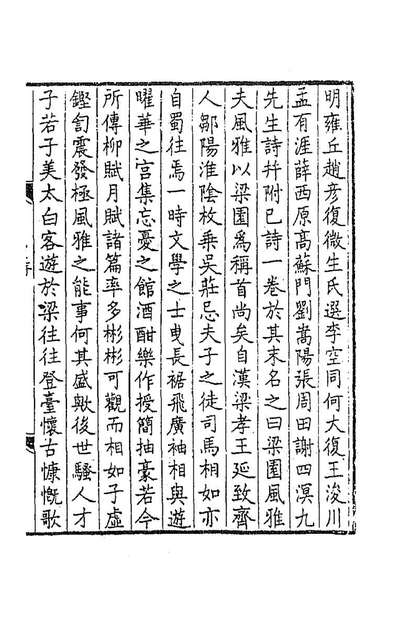 明雍丘趙彥復微生氏選李空同何大復王浚川
孟有涯薛西原高蘇門劉嵩陽張周田謝四溟九
先生詩并附己詩一卷於其末名之曰梁園風雅
夫風雅以梁園爲稱首尚矣自漢梁孝王延致齊
人鄒陽淮陰枚乗吳莊忌夫子之徒司馬相如亦
自蜀往焉一時文學之士曳長裾飛廣袖相與遊
曜華之宮集忘憂之館酒酣樂作授簡抽豪若今
所傳柳賦月賦諸篇率多彬彬可觀而相如子虛
鏗訇震發極風雅之能事何其盛歟後世騷人才
子若子美太白客遊於梁往往登臺懷古慷慨歌